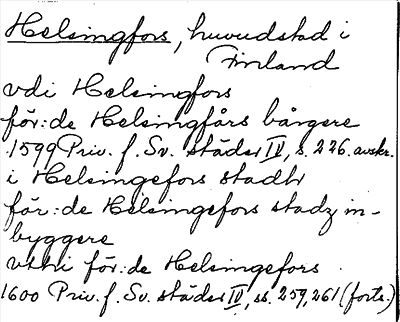 Helsingfors, huvudstad i
Finland
vdi Helsingfors
för:de Helsingfårs bårgere
1599 Priv. f. Sv. städer IV, s. 226. avskr.
i Helsingefors stadh
för:de Helsingefors stadz in-
byggere
vthi för:de Helsingefors
1600 Priv. f. Sv. städer IV, ss. 259, 261 (forts.)